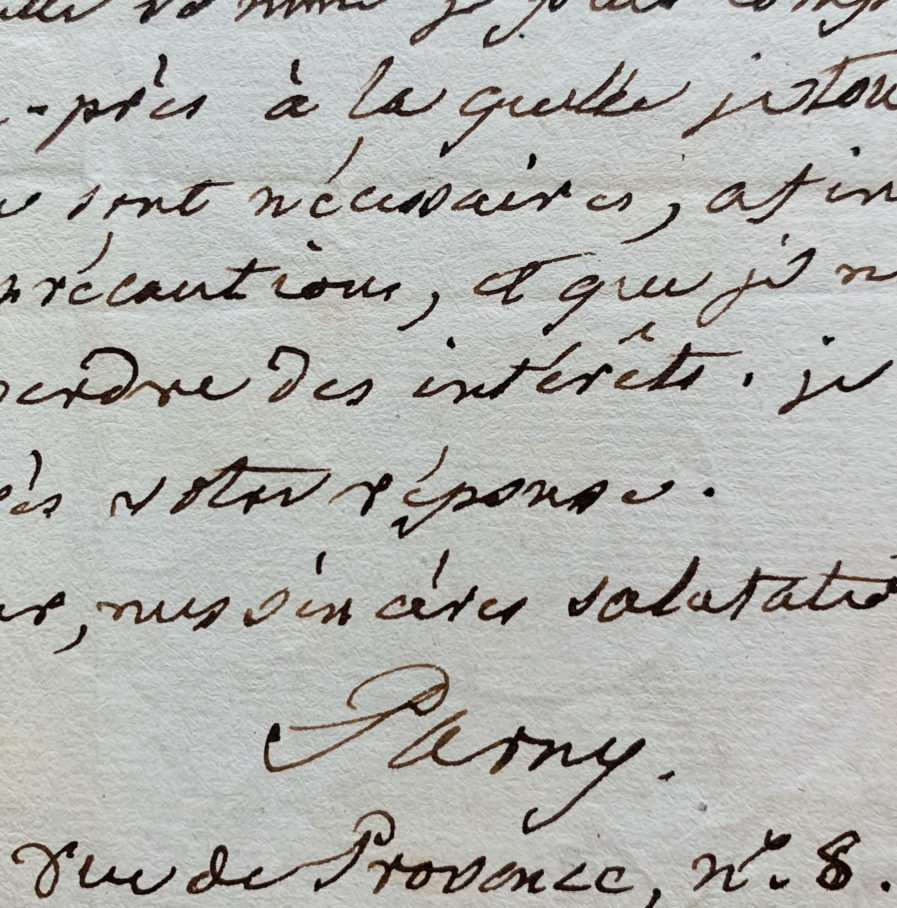 somme je
-près à la quelle je
sont nécessaires, afin
précautions, et que je n
perdre des intérêts. je
votre réponse.
mes sincéres salutatio
Parny.
rue de Provence, n.º 8.